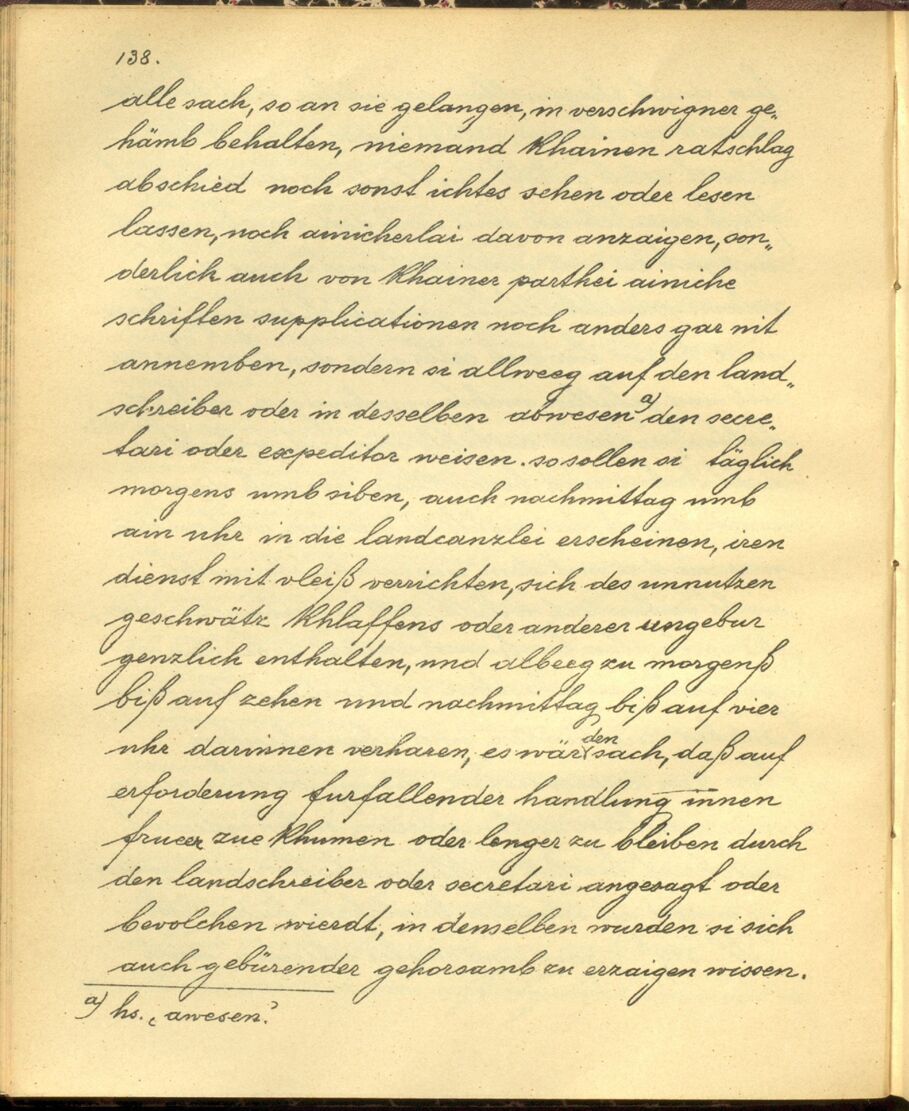 138.
alle sach, so an sie gelangen, in verschwigner ge„
hämb behalten, niemand khainen ratschlag
abschied noch sonst ichtes sehen oder lesen
lassen, noch ainicherlai davon anzaigen, son„
derlich auch von khainer parthei ainiche
schriften supplicationen noch anders gar nit
annemben, sondern si allweeg auf den land„
schreiber oder in desselben abwesen a) den secre„
tari oder expeditor weisen. so sollen si täglich
morgens umb siben, auch nachmittag umb
ain uhr in die landcanzlei erscheinen, iren
dienst mit vleiß verrichten, sich des unnutzen
geschwätz khlaffens oder anderer ungebur
genzlich enthalten, und albeeg zu morgenß
biß auf zehen und nachmittag biß auf vier
uhr darinnen verharen, es wär den sach, daß auf
erforderung furfallender handlung innen
frueer zue khumen oder lenger zu bleiben durch
den landschreiber oder secretari angesagt oder
bevolchen wierdt, in denselben wurden si sich
auch gebürender gehorsamb zu erzaigen wissen.
a) hs. ‚awesen.’